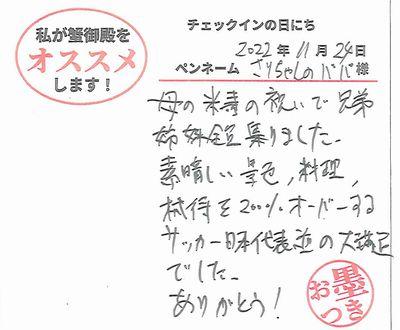 私が蟹御殿を
オススメ
します!
チェックインの日にち
2022年11月24日
ペンネーム さりちゃんのババ様
母の米寿の祝いで兄弟
姉妹全員集りました。
素晴しい景色,料理,
接待を200%オーバーする
サッカー日本代表並の大満足
でした。
ありがとう!
お墨つき